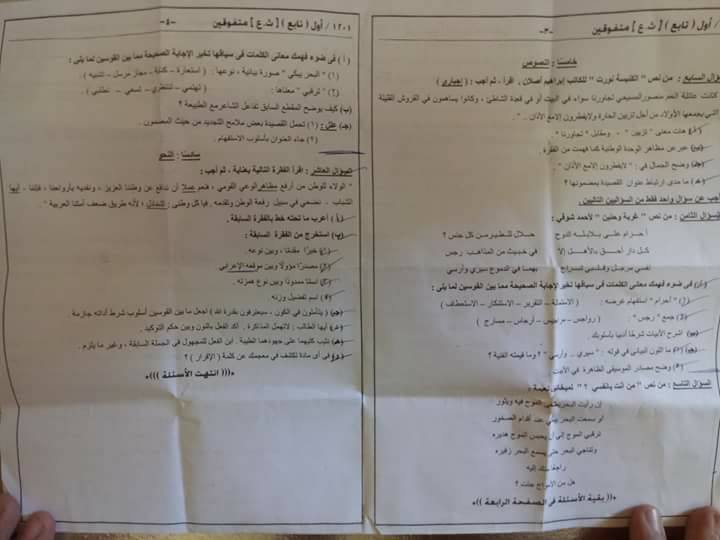 ١٢٠١ / أول ( تابع ) ( ث.ع ) متفوقين -٣-
خامسًا : النصوص
السؤال السابع : من نص " الكنيسة نورت " للكاتب إبراهيم أصلان ، اقرأ ، ثم أجب : ( إجباري )
كانت عائلة العم منصور المسيحي تجاورنا سواء في البيت أو في قعدة الشاطئ ، وكانوا يساهمون في القروش القليلة
التي يجمعها الأولاد من أجل تزيين الحارة ولا يفطرون إلا مع الأذان .. "
(أ) هات معنى " تزيين " - ومقابل " تجاورنا " .
(ب) عبر عن مظاهر الوحدة الوطنية كما فهمت من الفقرة
(جـ) وضح الجمال في : " لا يفطرون إلا مع الأذان " .
(د) ما مدى ارتباط عنوان القصيدة بمضمونها ؟
أجب عن سؤال واحد فقط من السؤاليين التاليين .
السؤال الثامن : من نص " غربة وحنين " لأحمد شوقي :
أحرام على بلابله الدوح حلال للطير من كل جنس ؟
كل دار أحق بالأهل إلا في خبيث من المذاهب رجس
نفسي مرجل وقلبي شراع بهما في الدموع سيري وأرسي
(أ) في ضوء فهمك معاني الكلمات في سياقها تخير الإجابة الصحيحة مما بين القوسين لما يلى :
(١) " أحرام " استفهام غرضه : ( الاستمالة – التقرير – الاستنكار – الاستعطاف )
(٢) جمع " رجس " . ( رواجس – – أرجاس – )
(ب) اشرح الأبيات شرحًا أدبيا بأسلوبك .
(جـ) ما اللون البياني في قوله : " سيري .. وأرسي " ؟ وما قيمته الفنية ؟
(د) وضح مصادر الموسيقى الظاهرة في الأبيات .
السؤال التاسع : من نص " من أنت يا نفسي ؟ " لميخائيل نعيمة :
إن رأيت البحر يطغى الموج فيه ويثور
أو سمعت البحر يبكي عند أقدام الصخور
ترقبي الموج إلى أن يحبس الموج هديره
وتناجي البحر حتى يسمع البحر زفيره
راجعًا منك إليه
هل من الأمواج جئت ؟
»(( بقية الأسئلة في الصفحة الرابعة ))«
١٢٠١ / أول ( تابع ) [ ث.ع ] متفوقين -٤-
( أ ) في ضوء فهمك معاني الكلمات في سياقها تخير الإجابة الصحيحة مما بين القوسين لما يلى :
(١) " البحر يبكي " صورة بيانية ، نوعها . ( استعارة – كناية – مجاز مرسل – تشبيه )
(٢) " ترقبي " معناها : ( تهتمي – تنتظري – تسعي – )
(ب) كيف يوضح المقطع السابق تفاعل الشاعر مع الطبيعة ؟
(جـ) علل : (١) تحمل القصيدة بعض ملامح التجديد من حيث المضمون .
(٢) جاء العنوان بأسلوب الاستفهام .
سادسًا : النحو
السؤال العاشر : اقرأ الفقرة التالية بعناية ، ثم أجب :
" الولاء للوطن من أرفع مظاهر الوعي القومي ، فنعم عملا أن ندافع عن وطننا العزيز ، ونفديه بأرواحنا ، فإننا - أيها
الشباب - نضحي في سبيل رفعة الوطن وتقدمه . فيا كل وطني : التخاذل ؛ لأنه طريق ضعف أمتنا العربية " .
(أ) أعرب ما تحته خط بالفقرة السابقة .
(ب) استخرج من الفقرة السابقة :
(١) خبرًا مقدمًا ، وبين نوعه .
(٢) مصدرًا مؤولًا وبين موقعه الإعرابي
(٣) اسمًا ممدودًا وبين نوع همزته .
(٤) اسم تفضيل وزنه
(جـ) ( يتأملون في الكون ، سيعرفون بقدرة الله ) اجعل ما بين القوسين أسلوب شرط أداته جازمة
(د) أيها الطالب : لا تهمل المذاكرة . أكد الفعل بالنون وبين حكم التوكيد .
(هـ) نثيب كليهما على جهودهما الطيبة . ابن الفعل للمجهول في الجملة السابقة ، وغير ما يلزم .
(و) في أي مادة تكشف في معجمك عن كلمة ( الإقرار ) ؟
»((( انتهت الأسئلة )))«